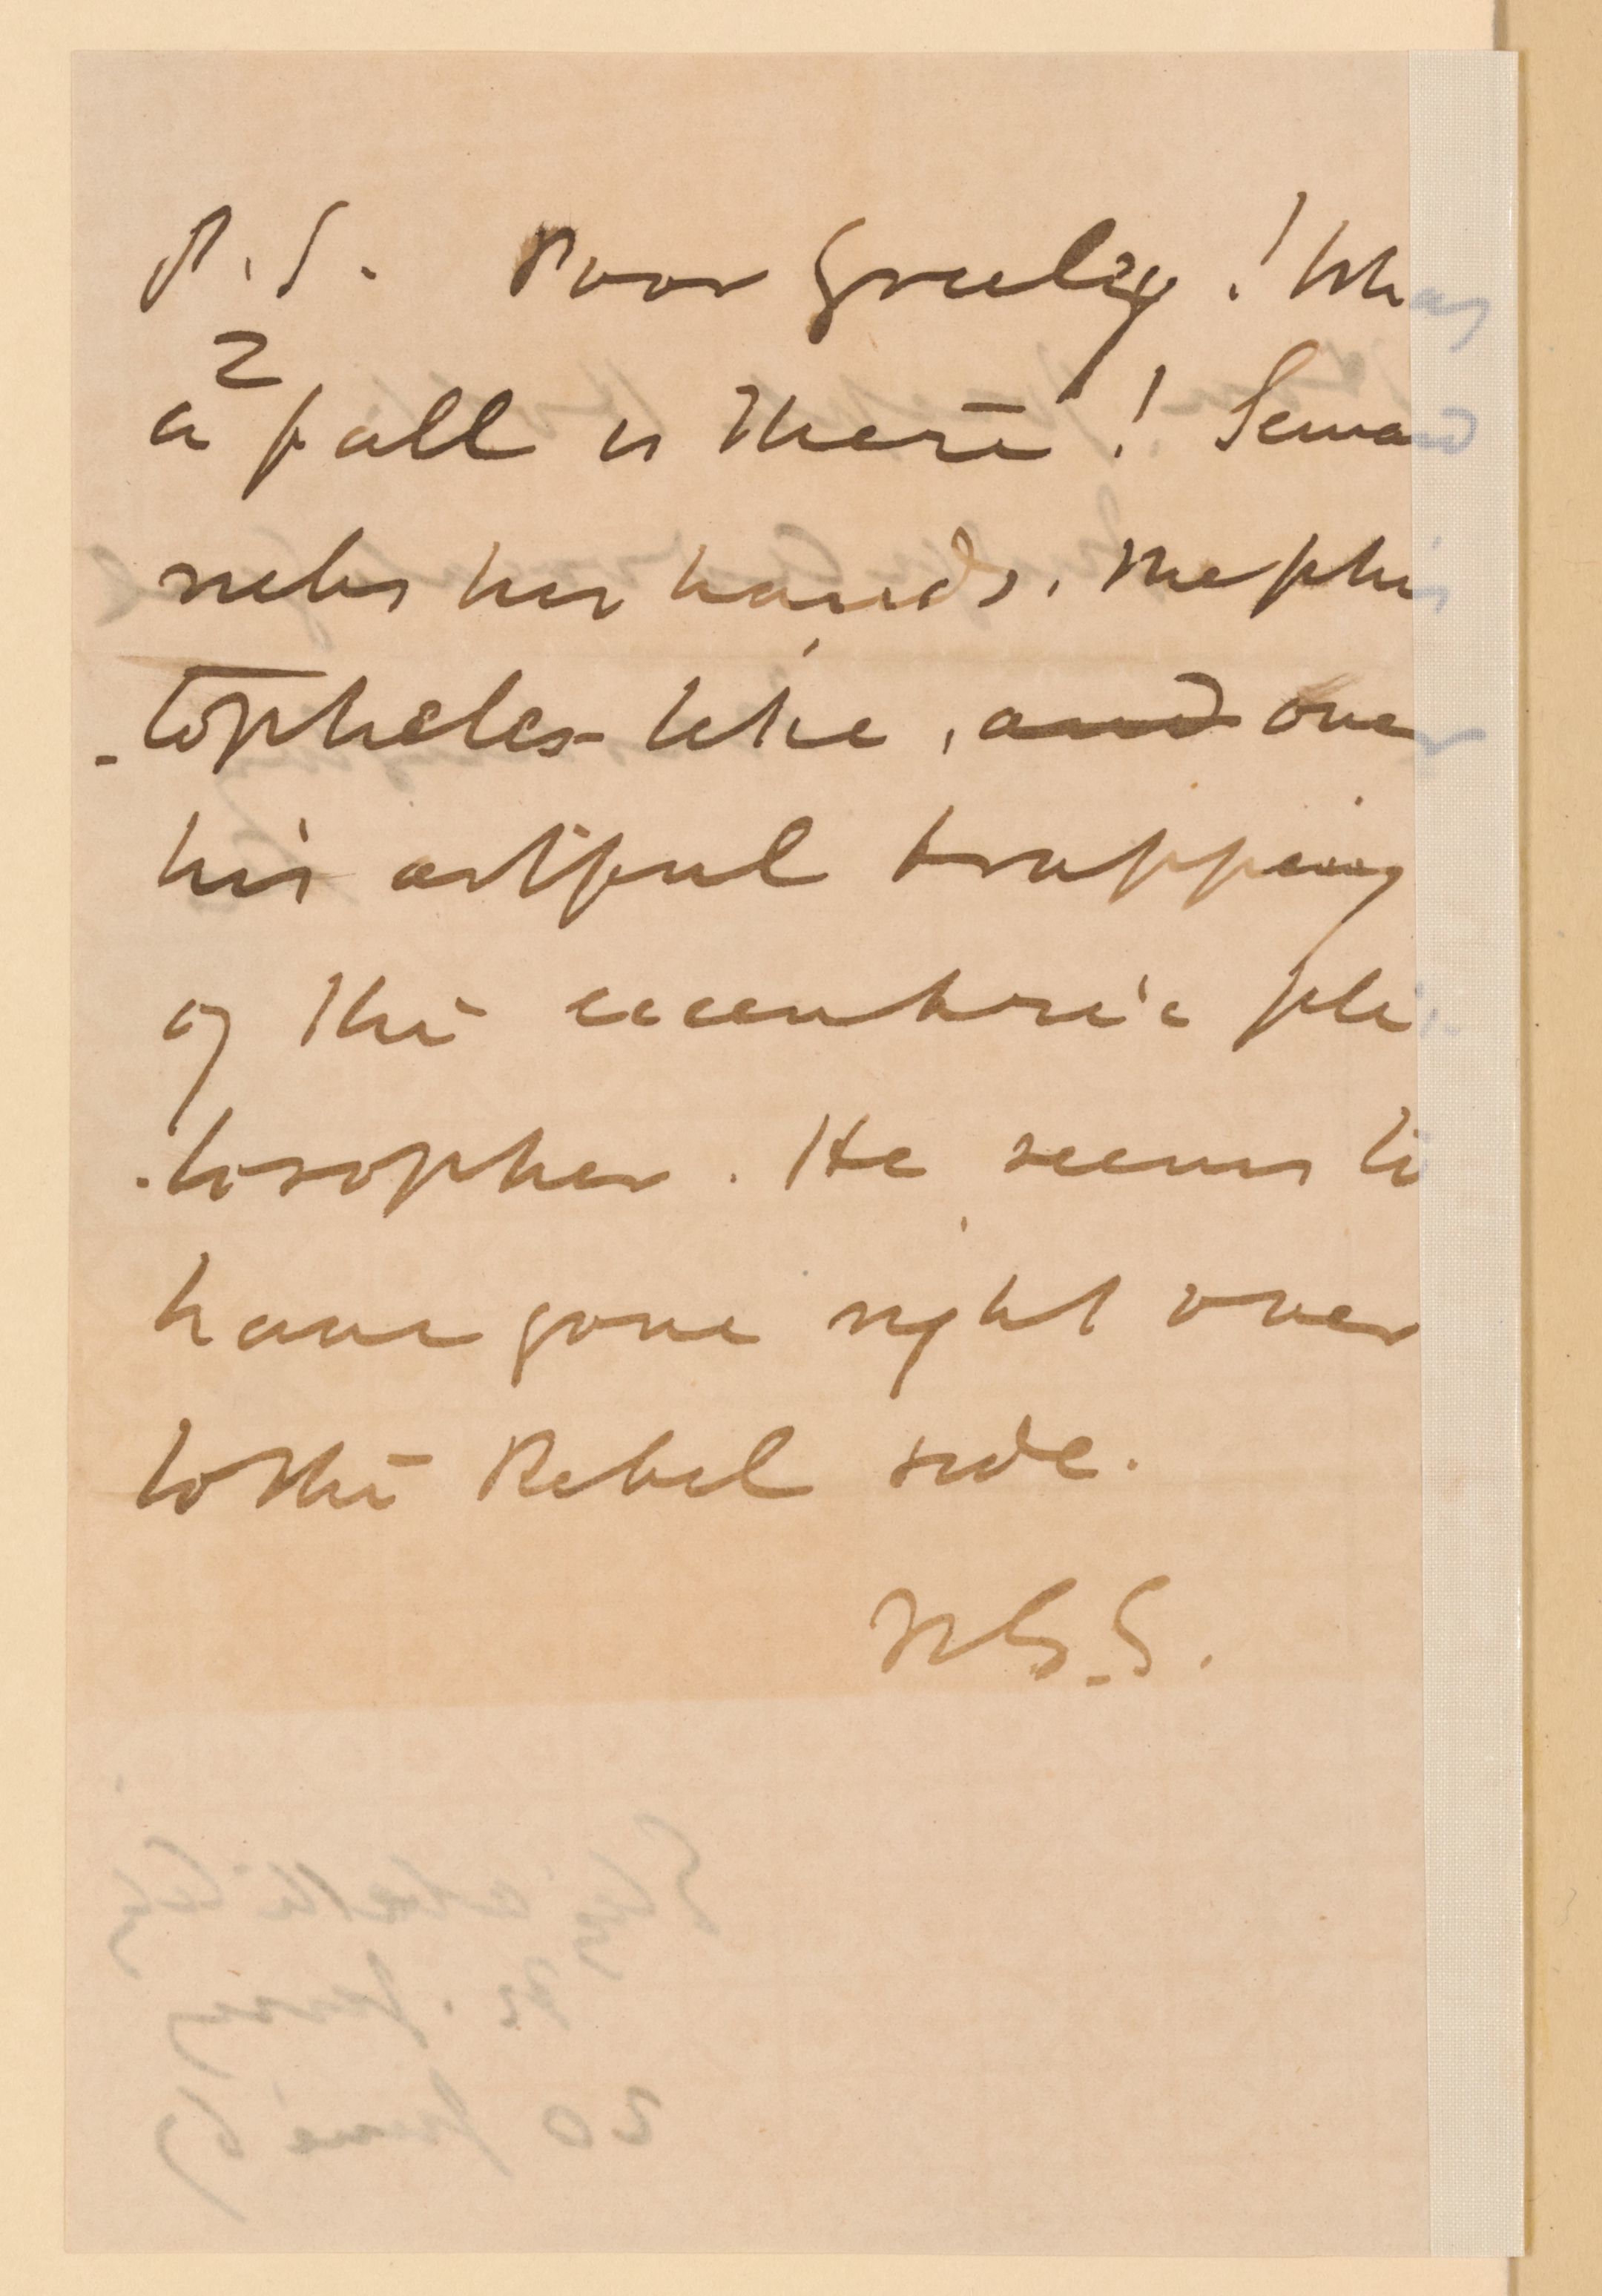 P.S. Poor Greeley! What
2
a fall is there! Seward
rubs his hands, Mephis
-topheles-like, and over
his artful trapping
of the eccentric phi
-losopher. He seems to
have gone right over
to the Rebel side.
W.G.S.
Elizabeth City
N. Jersey
20 June 67